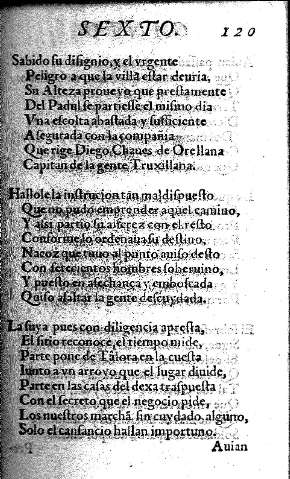 SEXTO. 120
Sabido su disignio, y el vrgente
Peligro a que la villa estar deuria,
Su Alteza proueyo que prestamente
Del Padul se partiesse el mismo dia
Vna escolta abastada y sufficiente
Assegurada con la compañia
Que rige Diego Chaues de Orellana
Capitan de la gente Truxillana.
Hallole la instrucion tan mal dispuesto
Que no pudo emprender aquel camino,
Y assi partio su alferez con el resto
Conforme lo ordenaua su destino,
Nacoz que tuuo al punto auiso desto
Con setecientos hombres sobreuino,
Y puesto en assechança y emboscada
Quiso assaltar la gente descuydada.
La suya pues con diligencia apresta,
El sitio reconoce, el tiempo mide,
Parte pone de Talora en la cuesta
Iunto a vn arroyo que el lugar diuide,
Parte en las casas del dexa traspuesta
Con el secreto que el negocio pide,
Los nuestros marchã, sin cuydado alguno,
Solo el cansancio hallan importuno.
Auian